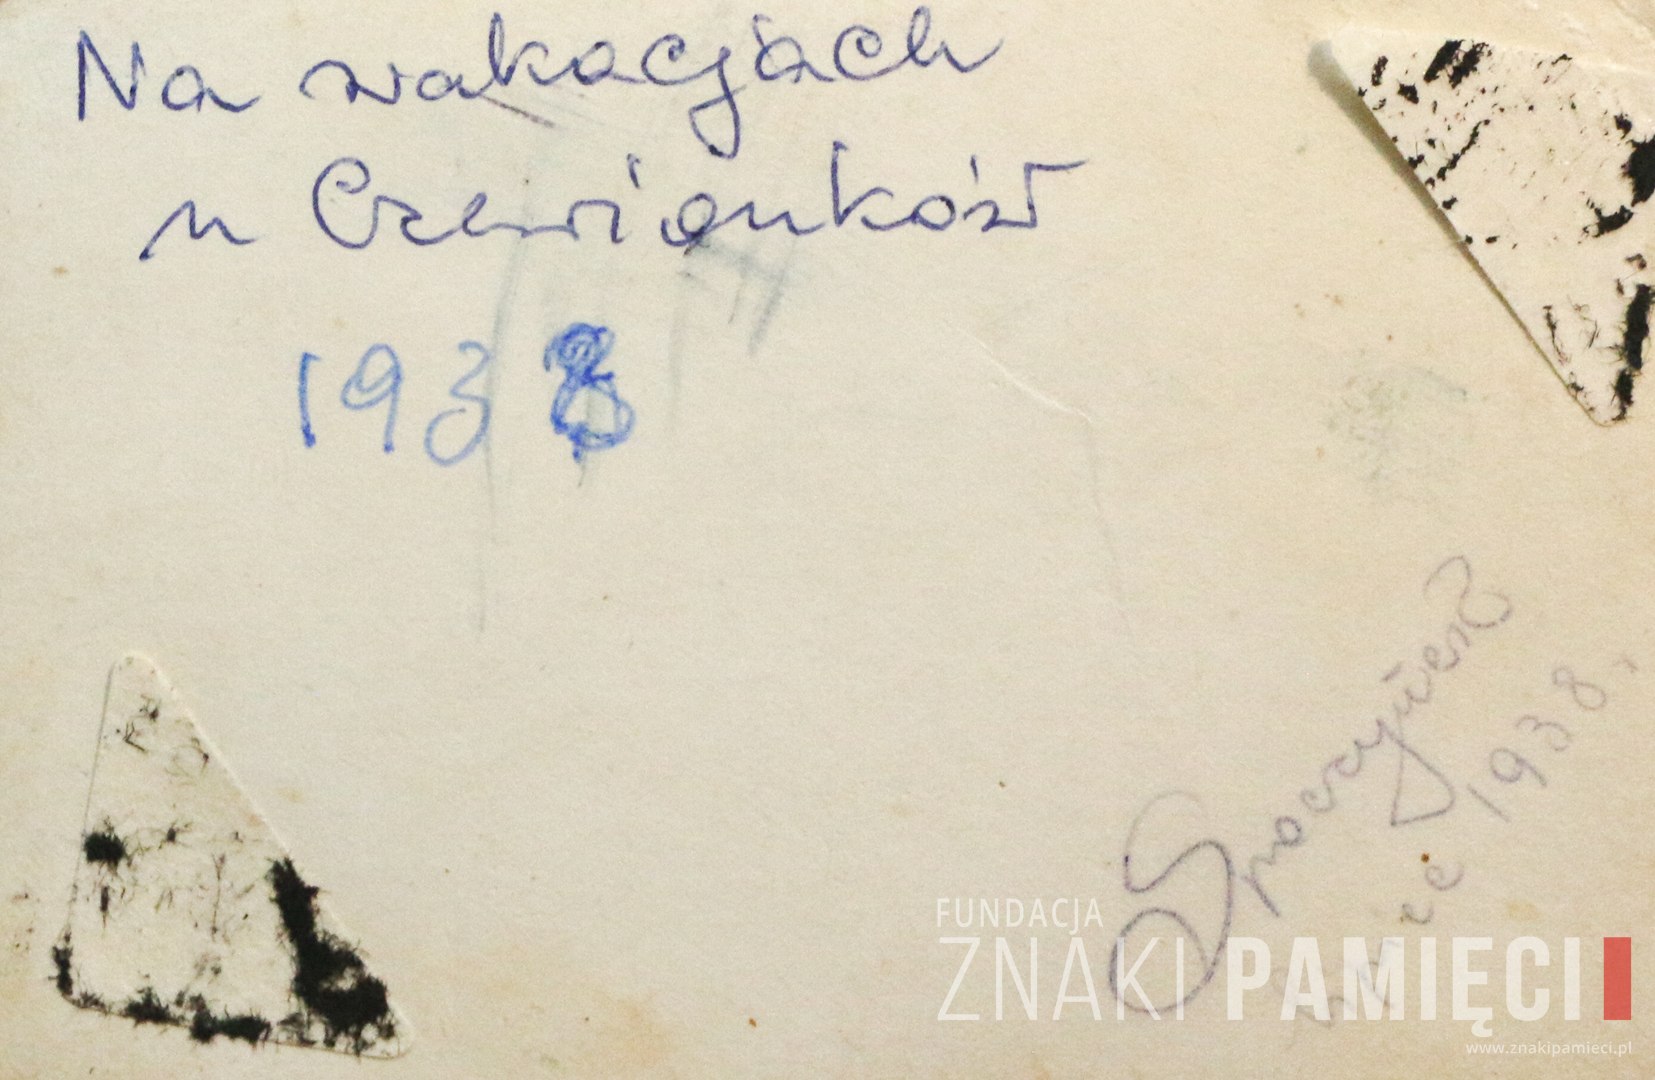 Na wakacjach
u Czewionków
1938
Spoczynek
lipiec 1938.
FUNDACJA
ZNAKI PAMIĘCI
www.znakipamieci.pl